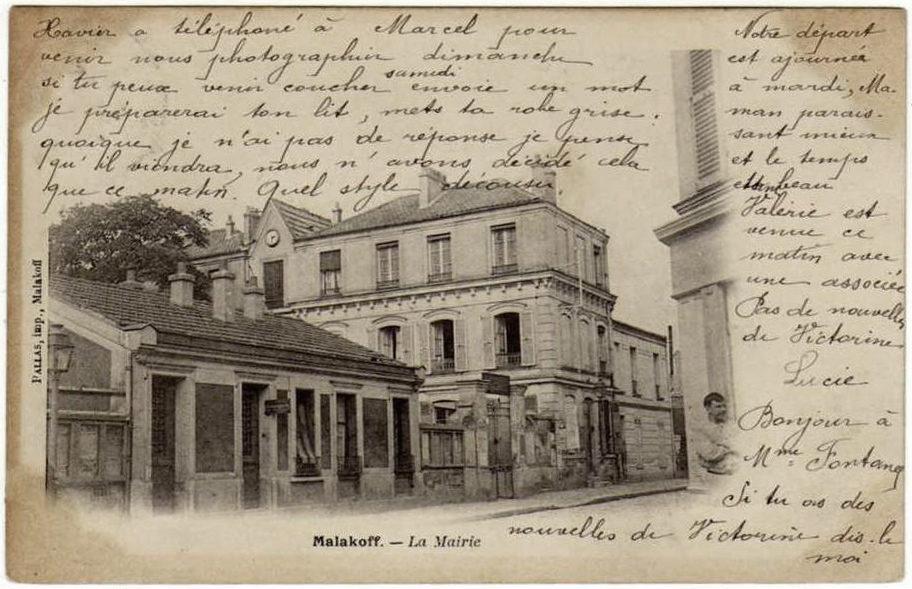 Xavier a téléphoné à Marcel pour
venir nous photographier dimanche
si tu peux venir coucher samedi envoie un mot
je préparerai ton lit, mets ta robe grise.
quoique je n'ai pas de réponse je pense
qu'il viendra, nous n'avons décidé cela
que ce matin. Quel style décousu
Notre départ
est ajournée
à mardi, Ma-
man parais-
sant mieux
et le temps
beau
Valérie est
venue ce
matin avec
une associée
Pas de nouvelles
de Victorine
Lucie
Bonjour à
Mme Fontang
Si tu as des
nouvelles de Victorine dis-le
moi
PALLAS, imp., Malakoff
Malakoff. — La Mairie